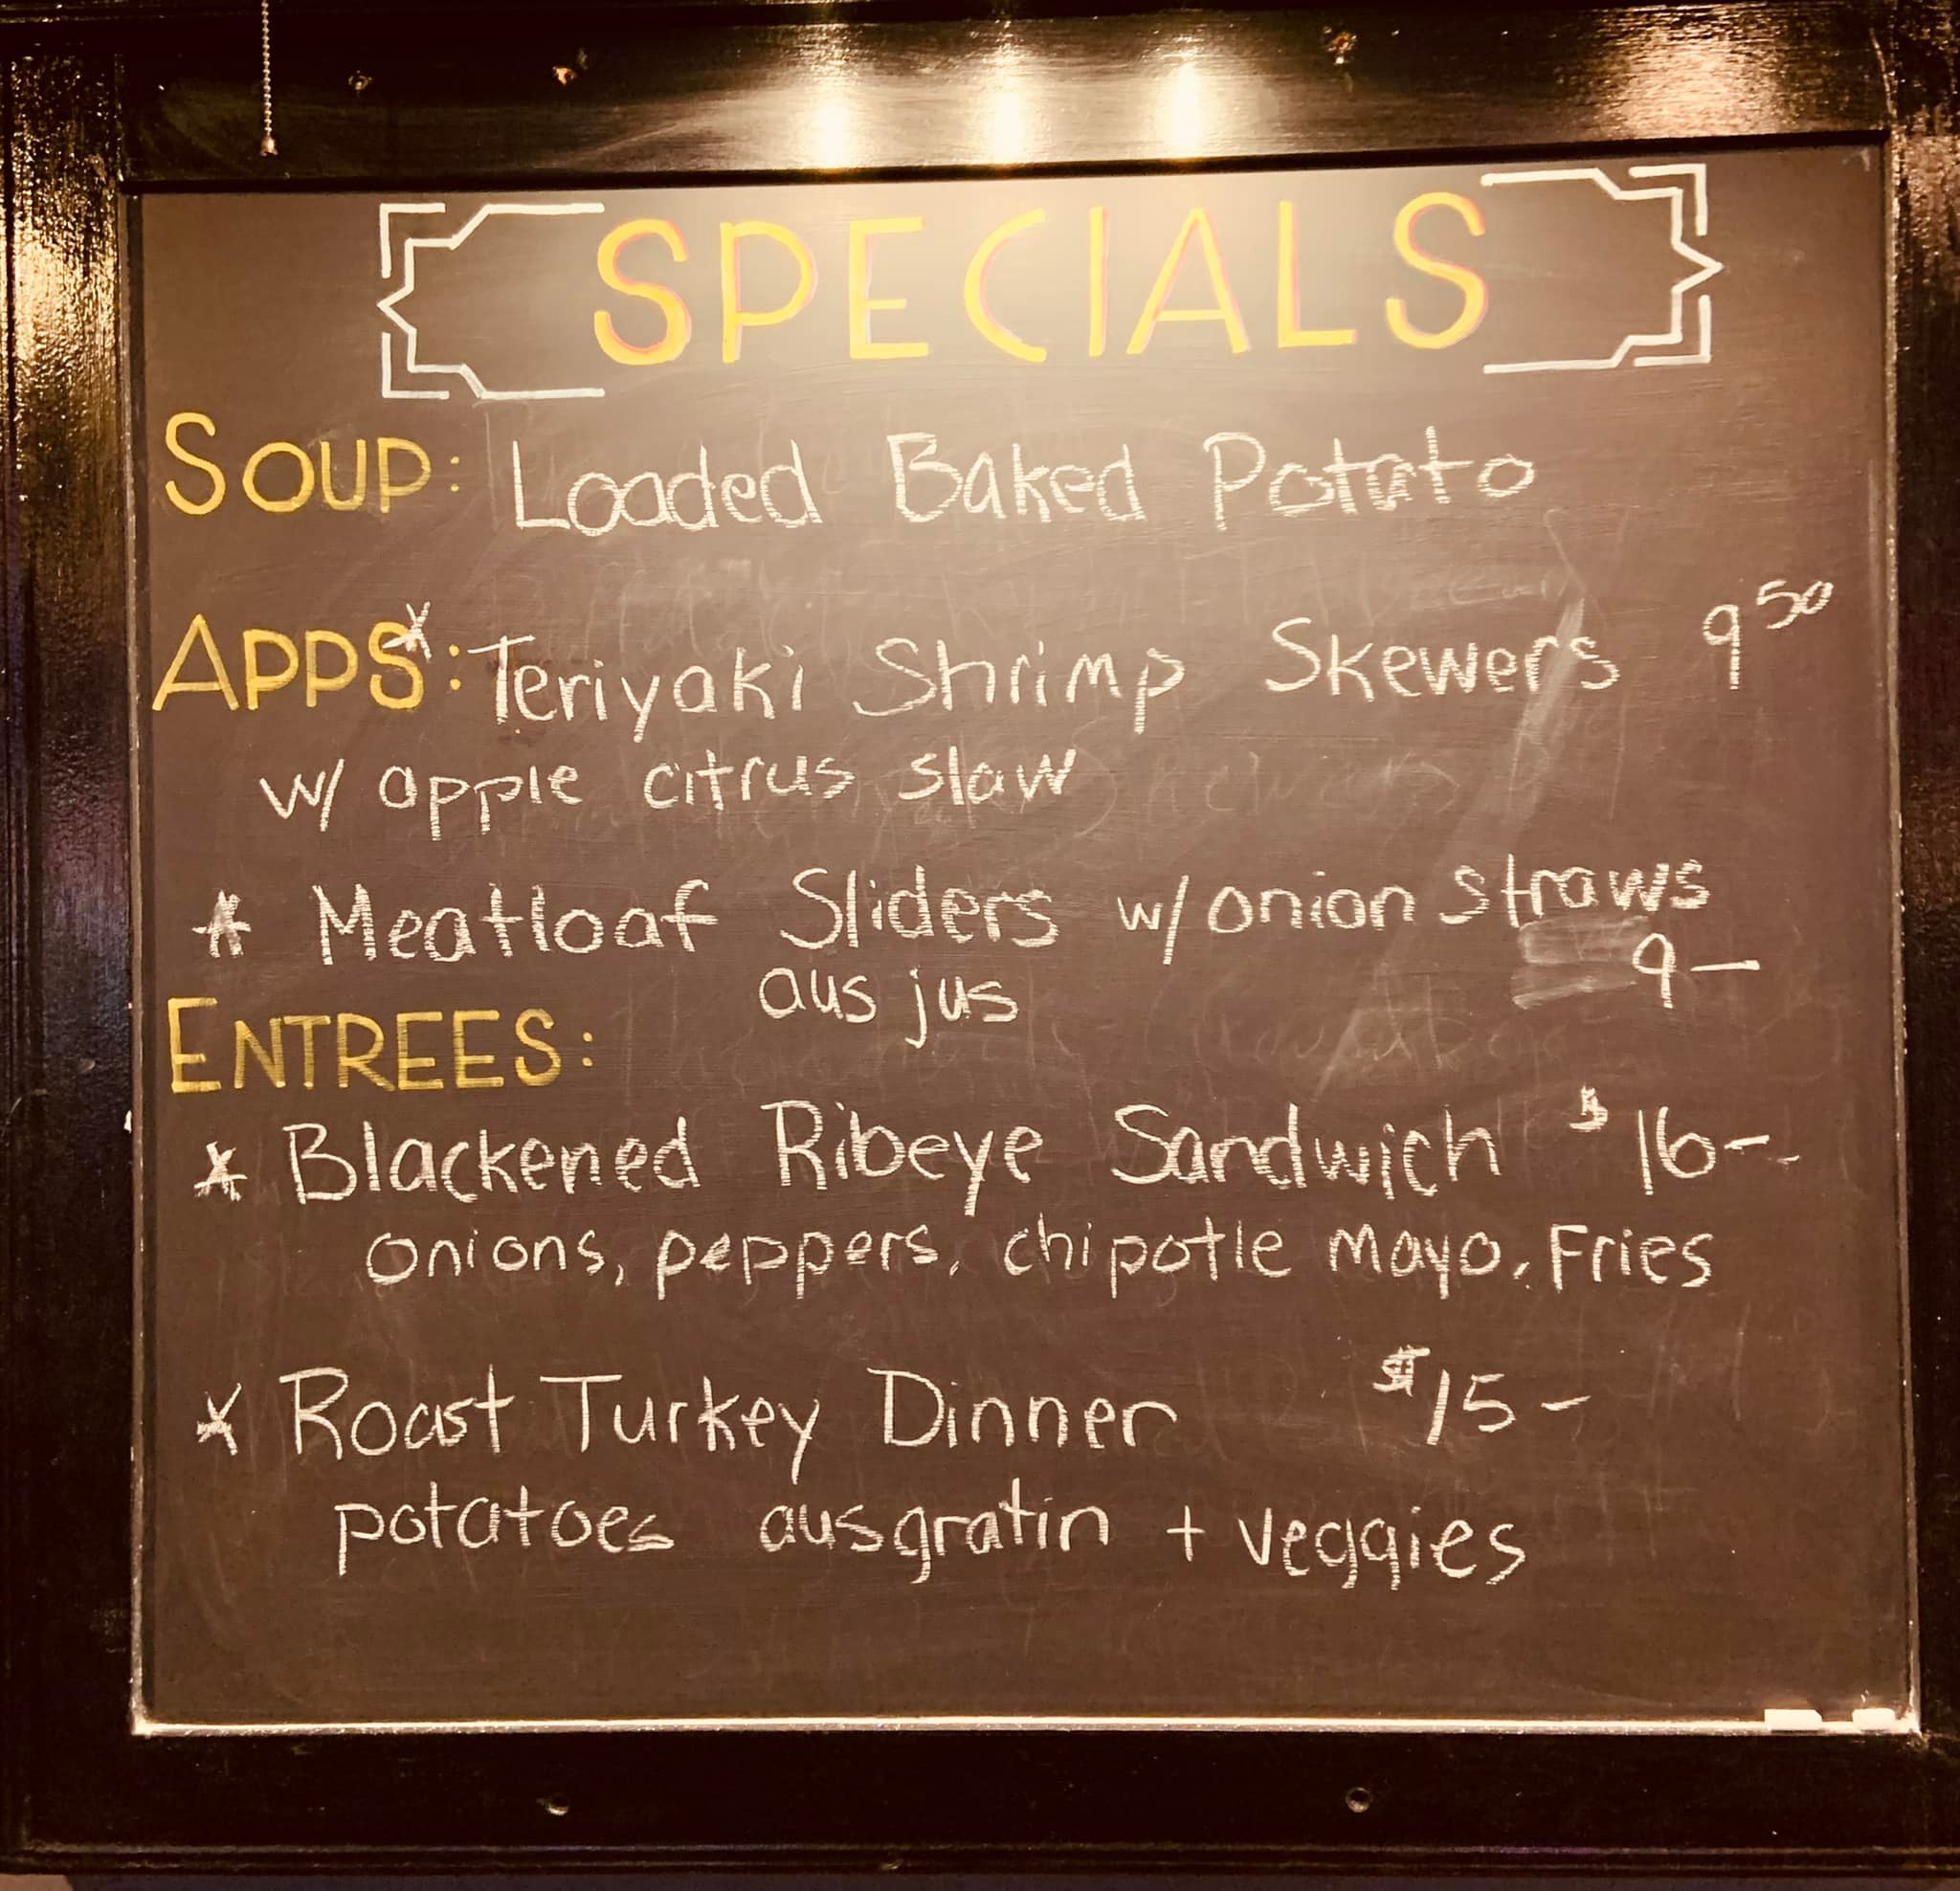 SPECIALS
SOUP: Loaded Baked Potato
APPS*: Teriyaki Shrimp Skewers 9 50
w/ apple citrus slaw
* Meatloaf Sliders w/ onion straws
aus jus 9—
ENTREES:
* Blackened Ribeye Sandwich $16-
onions, peppers, chipotle mayo, Fries
* Roast Turkey Dinner $15-
potatoes ausgratin + veggies